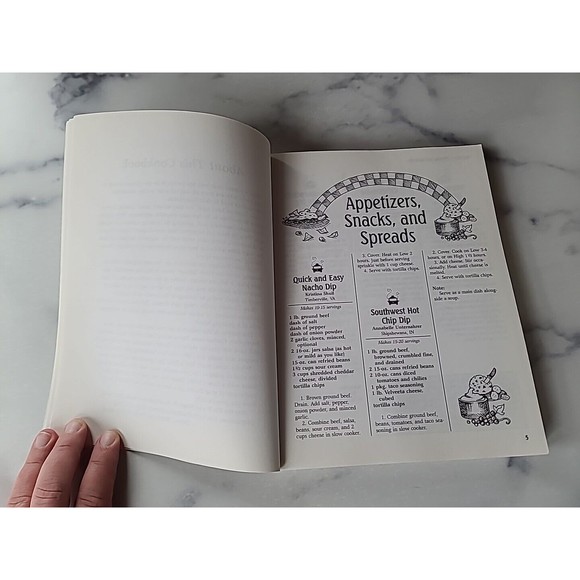 Appetizers,
Snacks, and
Spreads
Quick and Easy
Nacho Dip
Kristina Shull
Timberville, VA
Makes 10-15 servings
1 lb. ground beef
dash of salt
dash of pepper
dash of onion powder
2 garlic cloves, minced,
optional
2 16-oz. jars salsa (as hot
or mild as you like)
15-oz. can refried beans
1½ cups sour cream
3 cups shredded cheddar
cheese, divided
tortilla chips
1. Brown ground beef.
Drain. Add salt, pepper,
onion powder, and minced
garlic.
2. Combine beef, salsa,
beans, sour cream, and 2
cups cheese in slow cooker.
3. Cover. Heat on Low 2
hours. Just before serving
sprinkle with 1 cup cheese.
4. Serve with tortilla chips.
Southwest Hot
Chip Dip
Annabelle Unternahrer
Shipshewana, IN
Makes 15-20 servings
1 lb. ground beef,
browned, crumbled fine,
and drained
2 15-oz. cans refried beans
2 10-oz. cans diced
tomatoes and chilies
1 pkg. taco seasoning
1 lb. Velveeta cheese,
cubed
tortilla chips
1. Combine ground beef,
beans, tomatoes, and taco sea-
soning in slow cooker.
2. Cover. Cook on Low 3-4
hours, or on High 1½ hours.
3. Add cheese. Stir occa-
sionally. Heat until cheese is
melted.
4. Serve with tortilla chips.
Note:
Serve as a main dish along-
side a soup.
5